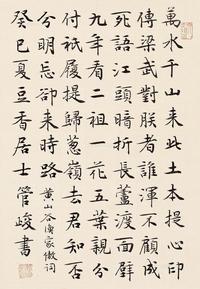 萬水千山來此土本提心印
傳梁武對朕者誰渾不顧成
死語江頭暗折長蘆渡面壁
九年看二祖一花五葉親分
付祇履提歸蔥嶺去君知否
分明忘卻來時路 黃山谷漁家傲詞
癸巳夏豆香居士管峻書